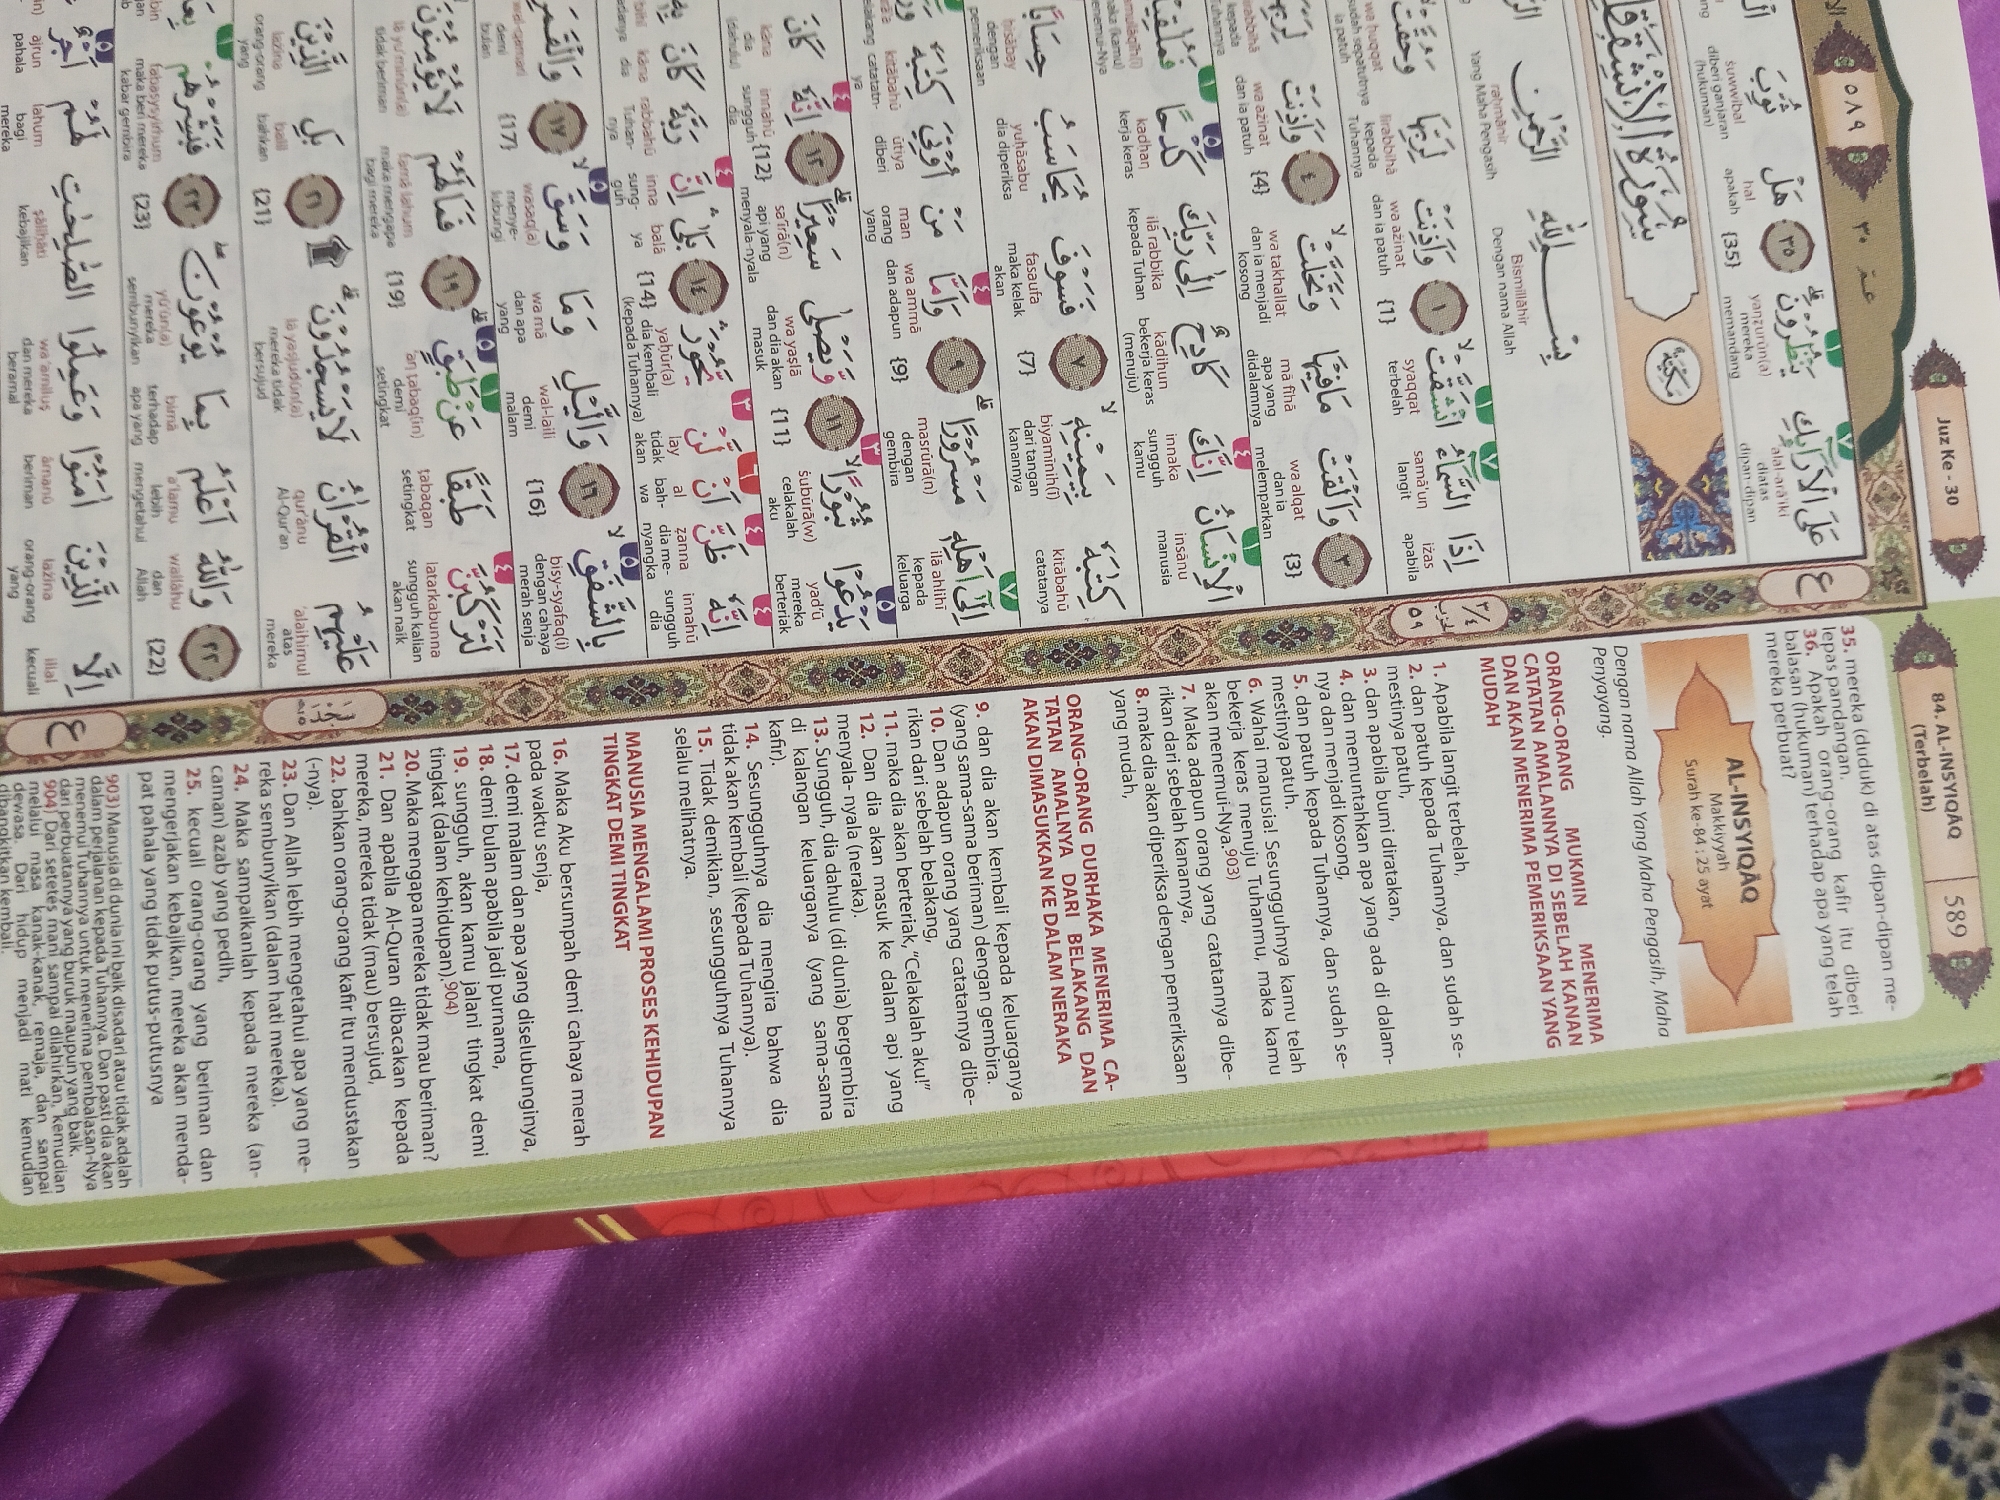 Juz Ke - 30
84. AL-INSYIQĀQ
(Terbelah)
589
٥٨٩
عَلَى الْاَرَاۤىِٕكِ يَنْظُرُوْنَۗ ٣٥ هَلْ ثُوِّبَ
‘alal-arā'iki yanẓurūn(a) hal ṡuwwibal
diatas dipan-dipan mereka memandang {35} apakah diberi ganjaran (hukuman)
مَكِّيَّة
بِسْمِ اللّٰهِ الرَّحْمٰنِ
Bismillāhir rahmānir
Dengan nama Allah Yang Maha Pengasih
اِذَا السَّمَاۤءُ انْشَقَّتْۙ ١ وَاَذِنَتْ لِرَبِّهَا وَحُقَّتْ
iżas samā'un syaqqat wa ażinat lirabbihā wa ḥuqqat
apabila langit terbelah {1} dan ia patuh kepada Tuhannya sudah sepatutnya ia patuh
٣ وَاَلْقَتْ مَا فِيْهَا وَتَخَلَّتْۙ ٤ وَاَذِنَتْ
{3} wa alqat mā fīhā wa takhallat {4} wa ażinat
dan ia melemparkan apa yang didalamnya dan ia menjadi kosong dan ia patuh
الْاِنْسَانُ اِنَّكَ كَادِحٌ اِلٰى رَبِّكَ كَدْحًا
insānu innaka kādiḥun ilā rabbika kadḥan
manusia sungguh kamu bekerja keras (menuju) kepada Tuhan kerja keras
كِتٰبَهٗ بِيَمِيْنِهٖۙ ٧ فَسَوْفَ يُحَاسَبُ حِسَابًا
kitābahū biyamīnih(ī) fasaufa yuḥāsabu
catatanya dari tangan kanannya {7} maka kelak akan dia diperiksa dengan pemeriksaan
اِلٰٓى اَهْلِهٖ مَسْرُوْرًاۗ ٩ وَاَمَّا مَنْ اُوْتِيَ كِتٰبَهٗ
ilā ahlihī masrūrā(n) wa ammā man ūtiya kitābahū
kepada keluarga dengan gembira {9} dan adapun orang yang diberi
يَدْعُوْا ثُبُوْرًاۙ ١١ وَّيَصْلٰى سَعِيْرًاۗ ١٢ اِنَّهٗ كَانَ
yad‘ū ṡubūrā(w) wa yaṣlā sa‘īrā(n) innahū kāna
mereka berteriak celakalah aku {11} dan dia akan masuk api yang menyala-nyala {12} sungguh dia
اِنَّهٗ ظَنَّ اَنْ لَّنْ يَّحُوْرَۛ ١٤ بَلٰىۛ اِنَّ رَبَّهٗ كَانَ
innahū ẓanna al lay yaḥūr(a) balā inna rabbahū kāna
بِالشَّفَقِۙ ١٦ وَالَّيْلِ وَمَا وَسَقَۙ ١٧ وَالْقَمَرِ
bisy-syafaq(i) wal-laili wa mā wasaq(a) wal-qamari
dengan cahaya merah senja {16} demi malam dan apa yang menye-lubungi {17} demi bulan
لَتَرْكَبُنَّ طَبَقًا عَنْ طَبَقٍۗ ١٩ فَمَا لَهُمْ لَا يُؤْمِنُوْنَ
latarkabunna ṭabaqan ‘an ṭabaq(in) famā lahum lā yu'minūn(a)
sungguh kalian akan naik setingkat demi setingkat {19} maka mengapa bagi mereka tidak beriman
عَلَيْهِمُ الْقُرْاٰنُ لَا يَسْجُدُوْنَۗ ٢١ بَلِ الَّذِيْنَ
‘alaihimul qur'ānu lā yasjudūn(a) balil lażīna
atas mereka Al-Qur'an mereka tidak bersujud {21} bahkan orang-orang yang
٢٢ وَاللّٰهُ اَعْلَمُ بِمَا يُوْعُوْنَۗ ٢٣ فَبَشِّرْهُمْ
{22} wallāhu a‘lamu bimā yū‘ūn(a) {23} fabasysyirhum
dan Allah lebih mengetahui terhadap apa yang mereka sembunyikan maka beri mereka kabar gembira
اِلَّا الَّذِيْنَ اٰمَنُوْا وَعَمِلُوا الصّٰلِحٰتِ لَهُمْ اَجْرٌ
illal lażīna āmanū wa ‘amiluṣ ṣāliḥāti lahum ajrun
kecuali orang-orang yang beriman dan mereka beramal kebajikan bagi mereka pahala
35. mereka (duduk) di atas dipan-dipan me-
lepas pandangan.
36. Apakah orang-orang kafir itu diberi
balasan (hukuman) terhadap apa yang telah
mereka perbuat?
AL-INSYIQĀQ
Makkiyyah
Surah ke-84 : 25 ayat
Dengan nama Allah Yang Maha Pengasih, Maha
Penyayang.
ORANG-ORANG MUKMIN MENERIMA
CATATAN AMALANNYA DI SEBELAH KANAN
DAN AKAN MENERIMA PEMERIKSAAN YANG
MUDAH
1. Apabila langit terbelah,
2. dan patuh kepada Tuhannya, dan sudah se-
mestinya patuh,
3. dan apabila bumi diratakan,
4. dan memuntahkan apa yang ada di dalam-
nya dan menjadi kosong,
5. dan patuh kepada Tuhannya, dan sudah se-
mestinya patuh.
6. Wahai manusia! Sesungguhnya kamu telah
bekerja keras menuju Tuhanmu, maka kamu
akan menemui-Nya.903)
7. Maka adapun orang yang catatannya dibe-
rikan dari sebelah kanannya,
8. maka dia akan diperiksa dengan pemeriksaan
yang mudah,
ORANG-ORANG DURHAKA MENERIMA CA-
TATAN AMALNYA DARI BELAKANG DAN
AKAN DIMASUKKAN KE DALAM NERAKA
9. dan dia akan kembali kepada keluarganya
(yang sama-sama beriman) dengan gembira.
10. Dan adapun orang yang catatannya dibe-
rikan dari sebelah belakang,
11. maka dia akan berteriak, “Celakalah aku!”
12. Dan dia akan masuk ke dalam api yang
menyala- nyala (neraka).
13. Sungguh, dia dahulu (di dunia) bergembira
di kalangan keluarganya (yang sama-sama
kafir).
14. Sesungguhnya dia mengira bahwa dia
tidak akan kembali (kepada Tuhannya).
15. Tidak demikian, sesungguhnya Tuhannya
selalu melihatnya.
MANUSIA MENGALAMI PROSES KEHIDUPAN
TINGKAT DEMI TINGKAT
16. Maka Aku bersumpah demi cahaya merah
pada waktu senja,
17. demi malam dan apa yang diselubunginya,
18. demi bulan apabila jadi purnama,
19. sungguh, akan kamu jalani tingkat demi
tingkat (dalam kehidupan).904)
20. Maka mengapa mereka tidak mau beriman?
21. Dan apabila Al-Quran dibacakan kepada
mereka, mereka tidak (mau) bersujud,
22. bahkan orang-orang kafir itu mendustakan
(-nya).
23. Dan Allah lebih mengetahui apa yang me-
reka sembunyikan (dalam hati mereka).
24. Maka sampaikanlah kepada mereka (an-
caman) azab yang pedih,
25. kecuali orang-orang yang beriman dan
mengerjakan kebajikan, mereka akan menda-
pat pahala yang tidak putus-putusnya
903) Manusia di dunia ini baik disadari atau tidak adalah
dalam perjalanan kepada Tuhannya. Dan pasti dia akan
menemui Tuhannya untuk menerima pembalasan-Nya
dari perbuatannya yang buruk maupun yang baik.
904) Dari setetes mani sampai dilahirkan, kemudian
melalui masa kanak-kanak, remaja, dan sampai
dewasa. Dari hidup menjadi mati kemudian
dibangkitkan kembali.